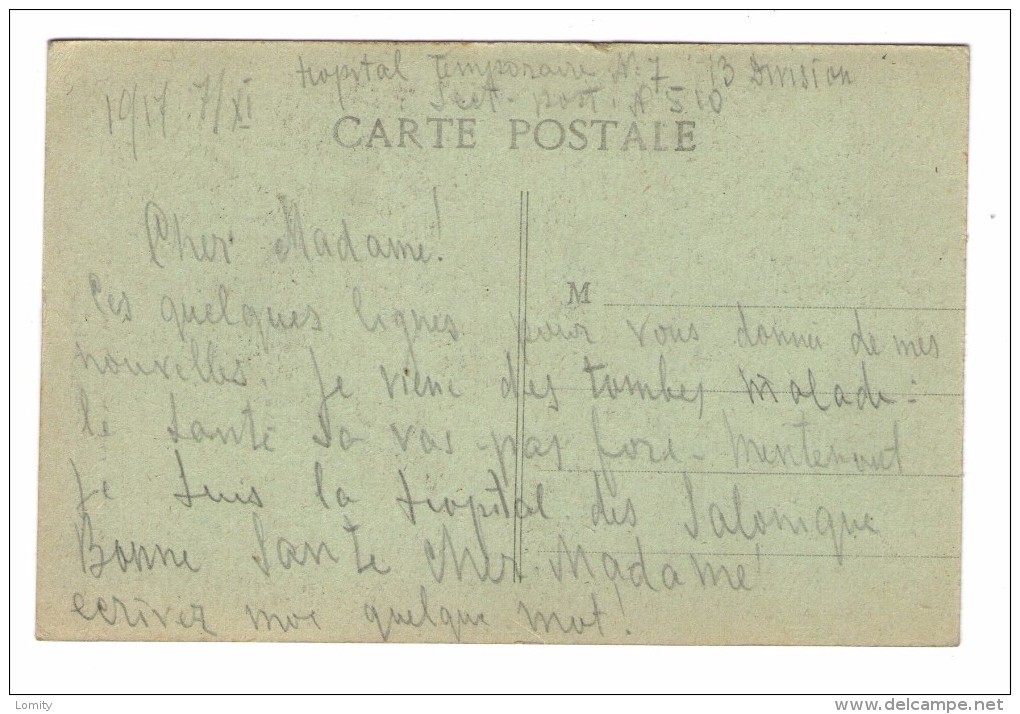 Hopital Temporaire N. 7 13 Division
1917. 7/XI Sect. post. A 510
CARTE POSTALE
Cher Madame!
M
Ces quelques lignes pour vous donner de mes
nouvelles. Je viene des tombes malade -
le Santé Sa vas pas fore - mentenant
Je suis la Hopital des Salonique
Bonne Sante Cher Madame!
ecrivez moi quelque mot!
Lomity
www.delcampe.net